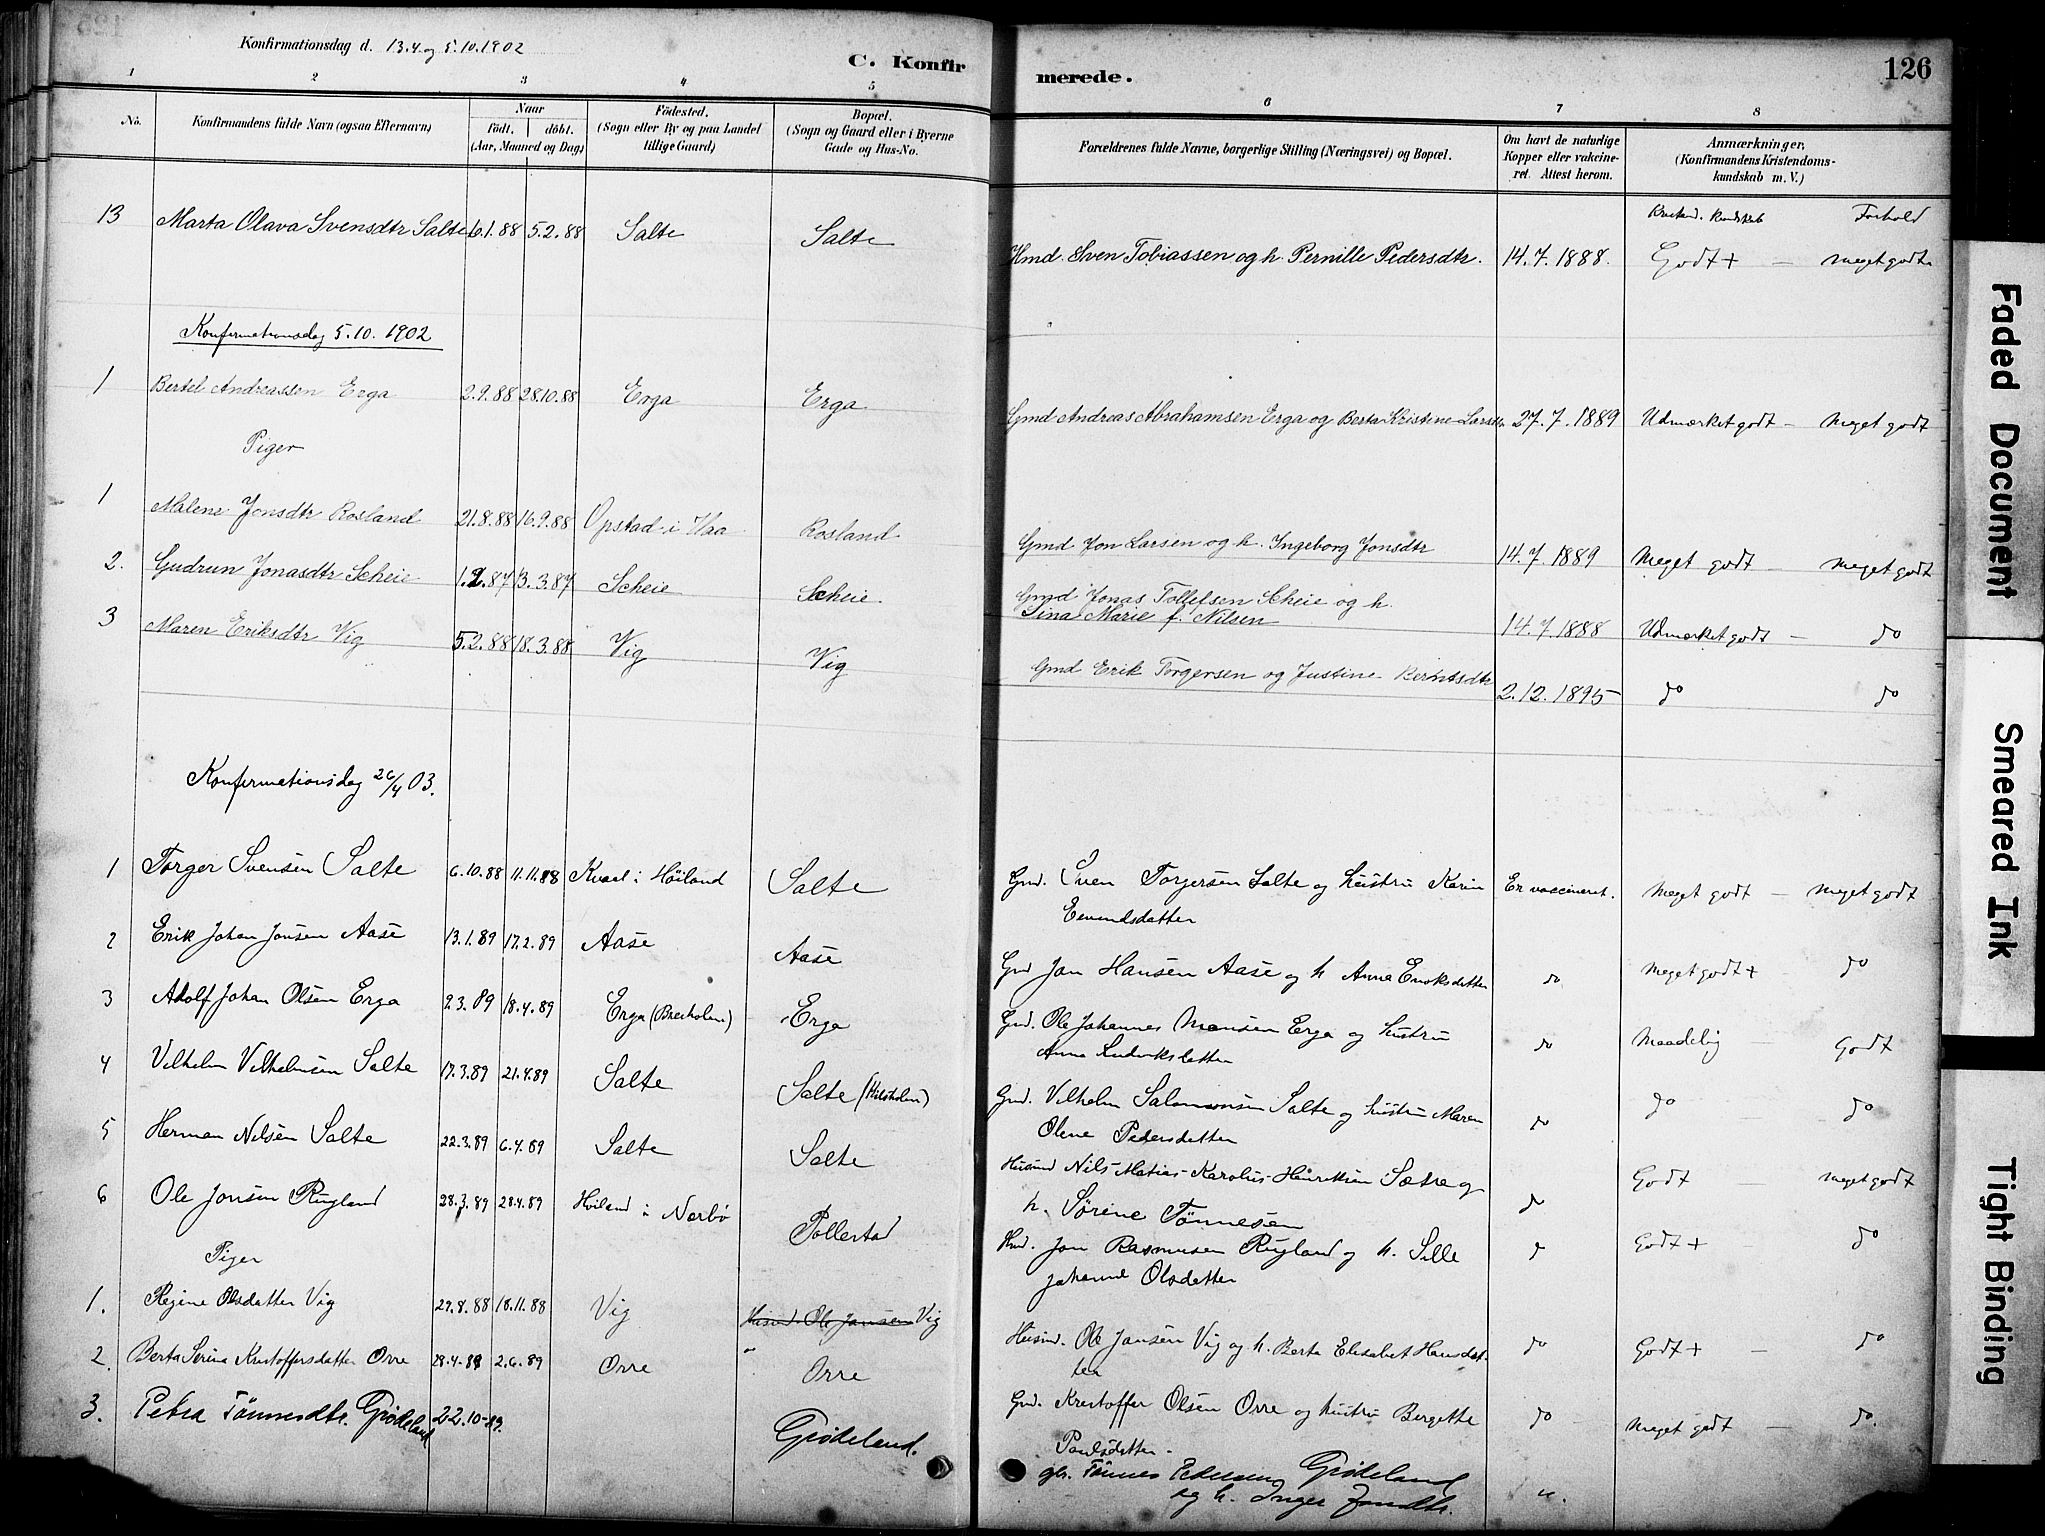 Konfirmationsdag d. 13.4 og 5.10.1902
C. Konfirmerede.
126
1 2 3 4 5 6 7 8
No. Konfirmandens fulde Navn (ogsaa Efternavn) Naar födt. döbt. (Aar, Maaned og Dag) Födested. (Sogn eller By og paa Landet tillige Gaard) Bopæl. (Sogn og Gaard eller i Byerne Gade og Hus-No. Forældrenes fulde Navne, borgerlige Stilling (Næringsvei) og Bopæl. Om havt de naturlige Kopper eller vakcineret. Attest herom. Anmærkninger, (Konfirmandens Kristendomskundskab m. V.)
Kristend. Kundskab Forhold
13 Marta Olava Svensdtr Salte 6.1.88 5.2.88 Salte Salte Hmd. Sven Tobiassen og h. Pernille Pedersdtr. 14.7.1888. Godt+ — meget godt
Konfirmationsdag 5.10.1902
1 Bertel Andreassen Erga 2.9.88 28.10.88 Erga Erga Gmd Andreas Abrahamsen Erga og Berta Kristine Larsdtr 27.7.1889 Udmærket godt — meget godt
Piger
1 Malene Jonsdtr Rosland 21.8.88 16.9.88 Opstad i Haa Rosland Gmd Jon Larsen og h. Ingeborg Jonsdtr 14.7.1889 Meget godt — meget godt
2. Gudrun Jonasdtr Scheie 1.2.87 13.3.87 Scheie Scheie Gmd Jonas Tollefsen Scheie og h.
Sina Marie f. Nilsen 14.7.1888 Udmærket godt — do
3 Maren Eriksdtr Vig 5.2.88 18.3.88 Vig Vig Gmd Erik Torgersen og Justine Berntsdtr 2.12.1895 do do
Konfirmationsdag 26/4 03.
1 Torger Svensen Salte 6.10.88 11.11.88 Kvaal i Höiland Salte Gmd. Sven Torgersen Salte og hustru Karin Er vaccineret. Meget godt — meget godt
Emundsdatter
2 Erik Johan Jonsen Aase 13.1.89 17.2.89 Aase Aase Gmd Jon Hansen Aase og h Anna Enoksdatter do meget godt+ do
3 Adolf Johan Olsen Erga 9.3.89 18.4.89 Erga (Brekholen) Erga Gmd. Ole Johannes Monsen Erga og hustru do Maadelig — Godt
Anna Ludviksdatter
4 Vilhelm Vilhelmsen Salte 17.3.89 21.4.89 Salte Salte Gmd. Vilhelm Salomonsen Salte og hustru Maren do do do
Olene Pedersdatter
5 Herman Nilsen Salte 22.3.89 6.4.89 Salte Salte Husmd Nils Matias Karolius Henriksen Sætre og do Godt — meget godt
h. Sörine Tönnesen
6 Ole Jonsen Rugland 28.3.89 28.4.89 Höiland i Nærbö Pollestad Hmd. Jon Rasmusen Rugland og h. Sille do Godt+ — do
Johanne Olsdatter
Piger
1. Regine Olsdatter Vig 29.8.88 18.11.88 Vig Husmd. Ole Jansen Vig Husmd. Ole Jansen Vig og h. Berta Elisabet Hansdatter do Godt+ — do
2. Berta Serina Kristoffersdatter Orre 28.4.89 2.6.89 Orre Orre Gmd. Kristoffer Olsen Orre og hustru Bergette do meget godt — do.
Paulsdatter
3. Petra Tönnesdtr. Grödeland 22.10-89. Grödeland. gbr. Tönnes Pedersen Grödeland
og h. Inger Jonsdtr. "
Faded Document
Smeared Ink
Tight Binding